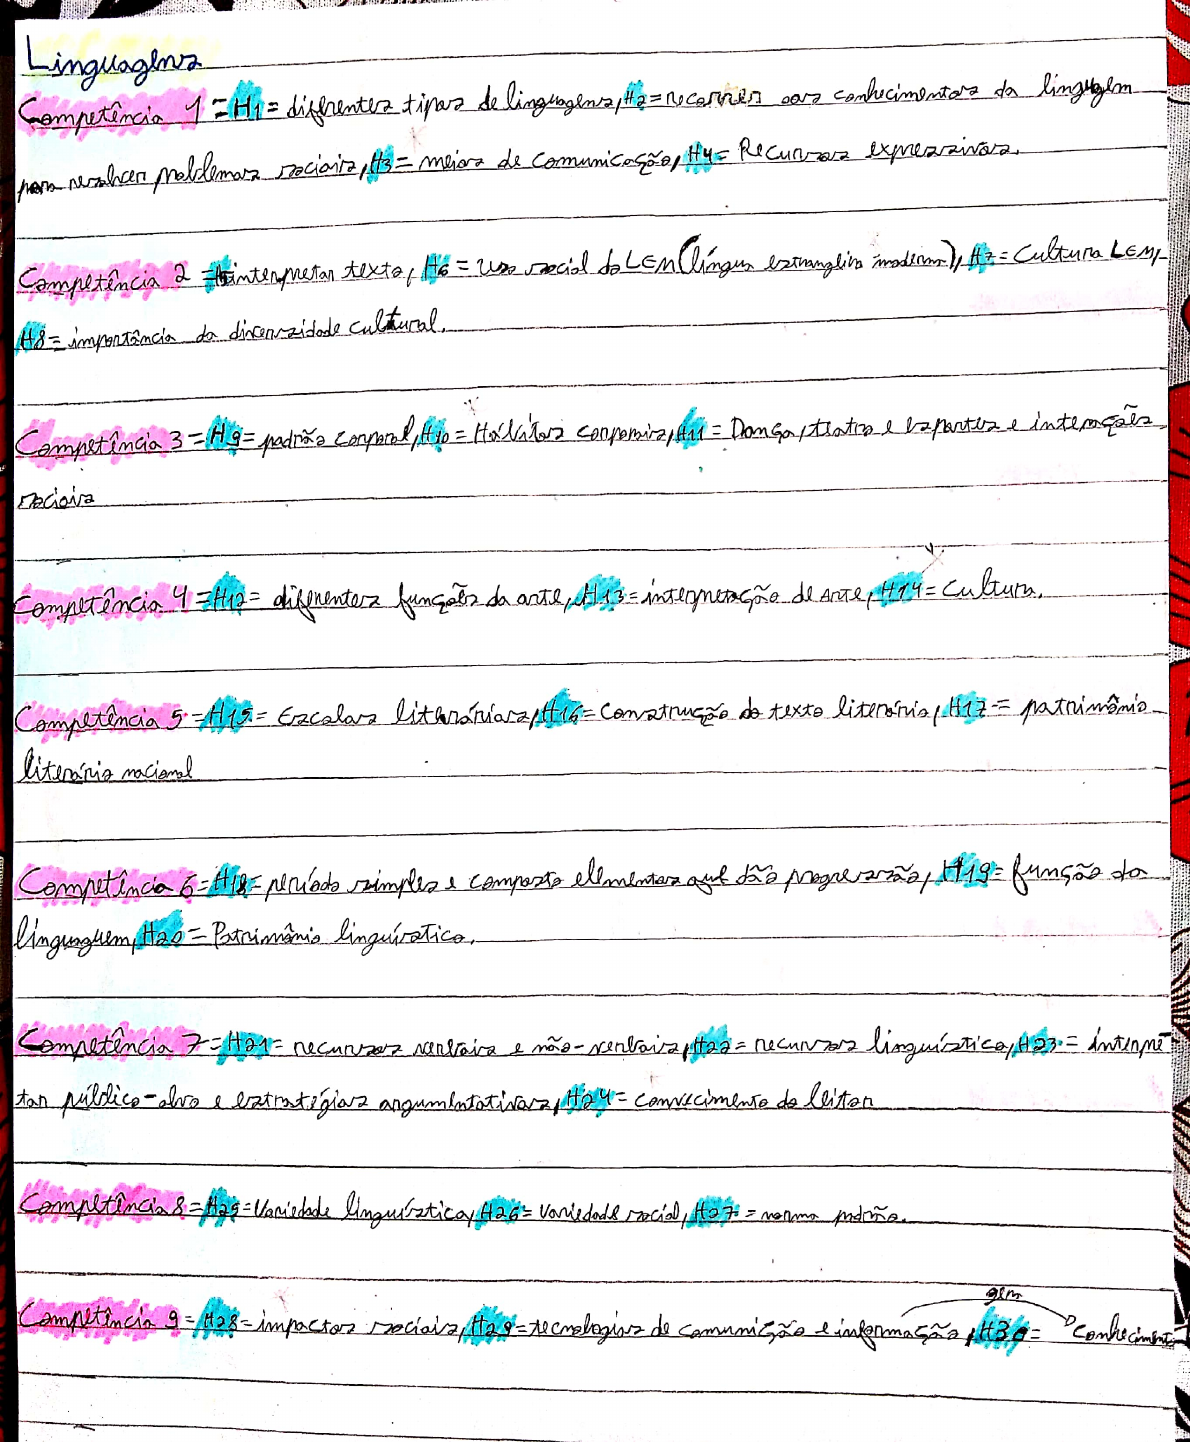 Linguagens
Competência 1 = H1 = diferentes tipos de linguagens, H2 = recorrer aos conhecimentos da linguagem
para resolver problemas sociais, H3 = meios de comunicação, H4 = Recursos expressivos.
Competência 2 = H5 interpretar texto, H6 = Uso social do LEM (língua estrangeira moderna), H7 = Cultura LEM,
H8 = importância da diversidade cultural.
Competência 3 = H9 = padrão corporal, H10 = Hábitos corporais, H11 = Dança, teatro e esportes e interações
sociais
Competência 4 = H12 = diferentes funções da arte, H13 = interpretação de Arte, H14 = Cultura.
Competência 5 = H15 = Escolas literárias, H16 = Construção do texto literário, H17 = patrimônio
literário nacional
Competência 6 = H18 = período simples e composto elementos que dão progressão, H19 = função da
linguaguem, H20 = Patrimônio linguístico.
Competência 7 = H21 = recursos verbais e não-verbais, H22 = recursos linguístico, H23 = interpre
tar público-alvo e estratégias argumentativas, H24 = convecimento do leitor
Competência 8 = H25 = Variedade linguística, H26 = variedade social, H27 = norma padrão.
gem
Competência 9 = H28 = impactos sociais, H29 = tecnologias de comunicação e informação, H30 = conhecimento